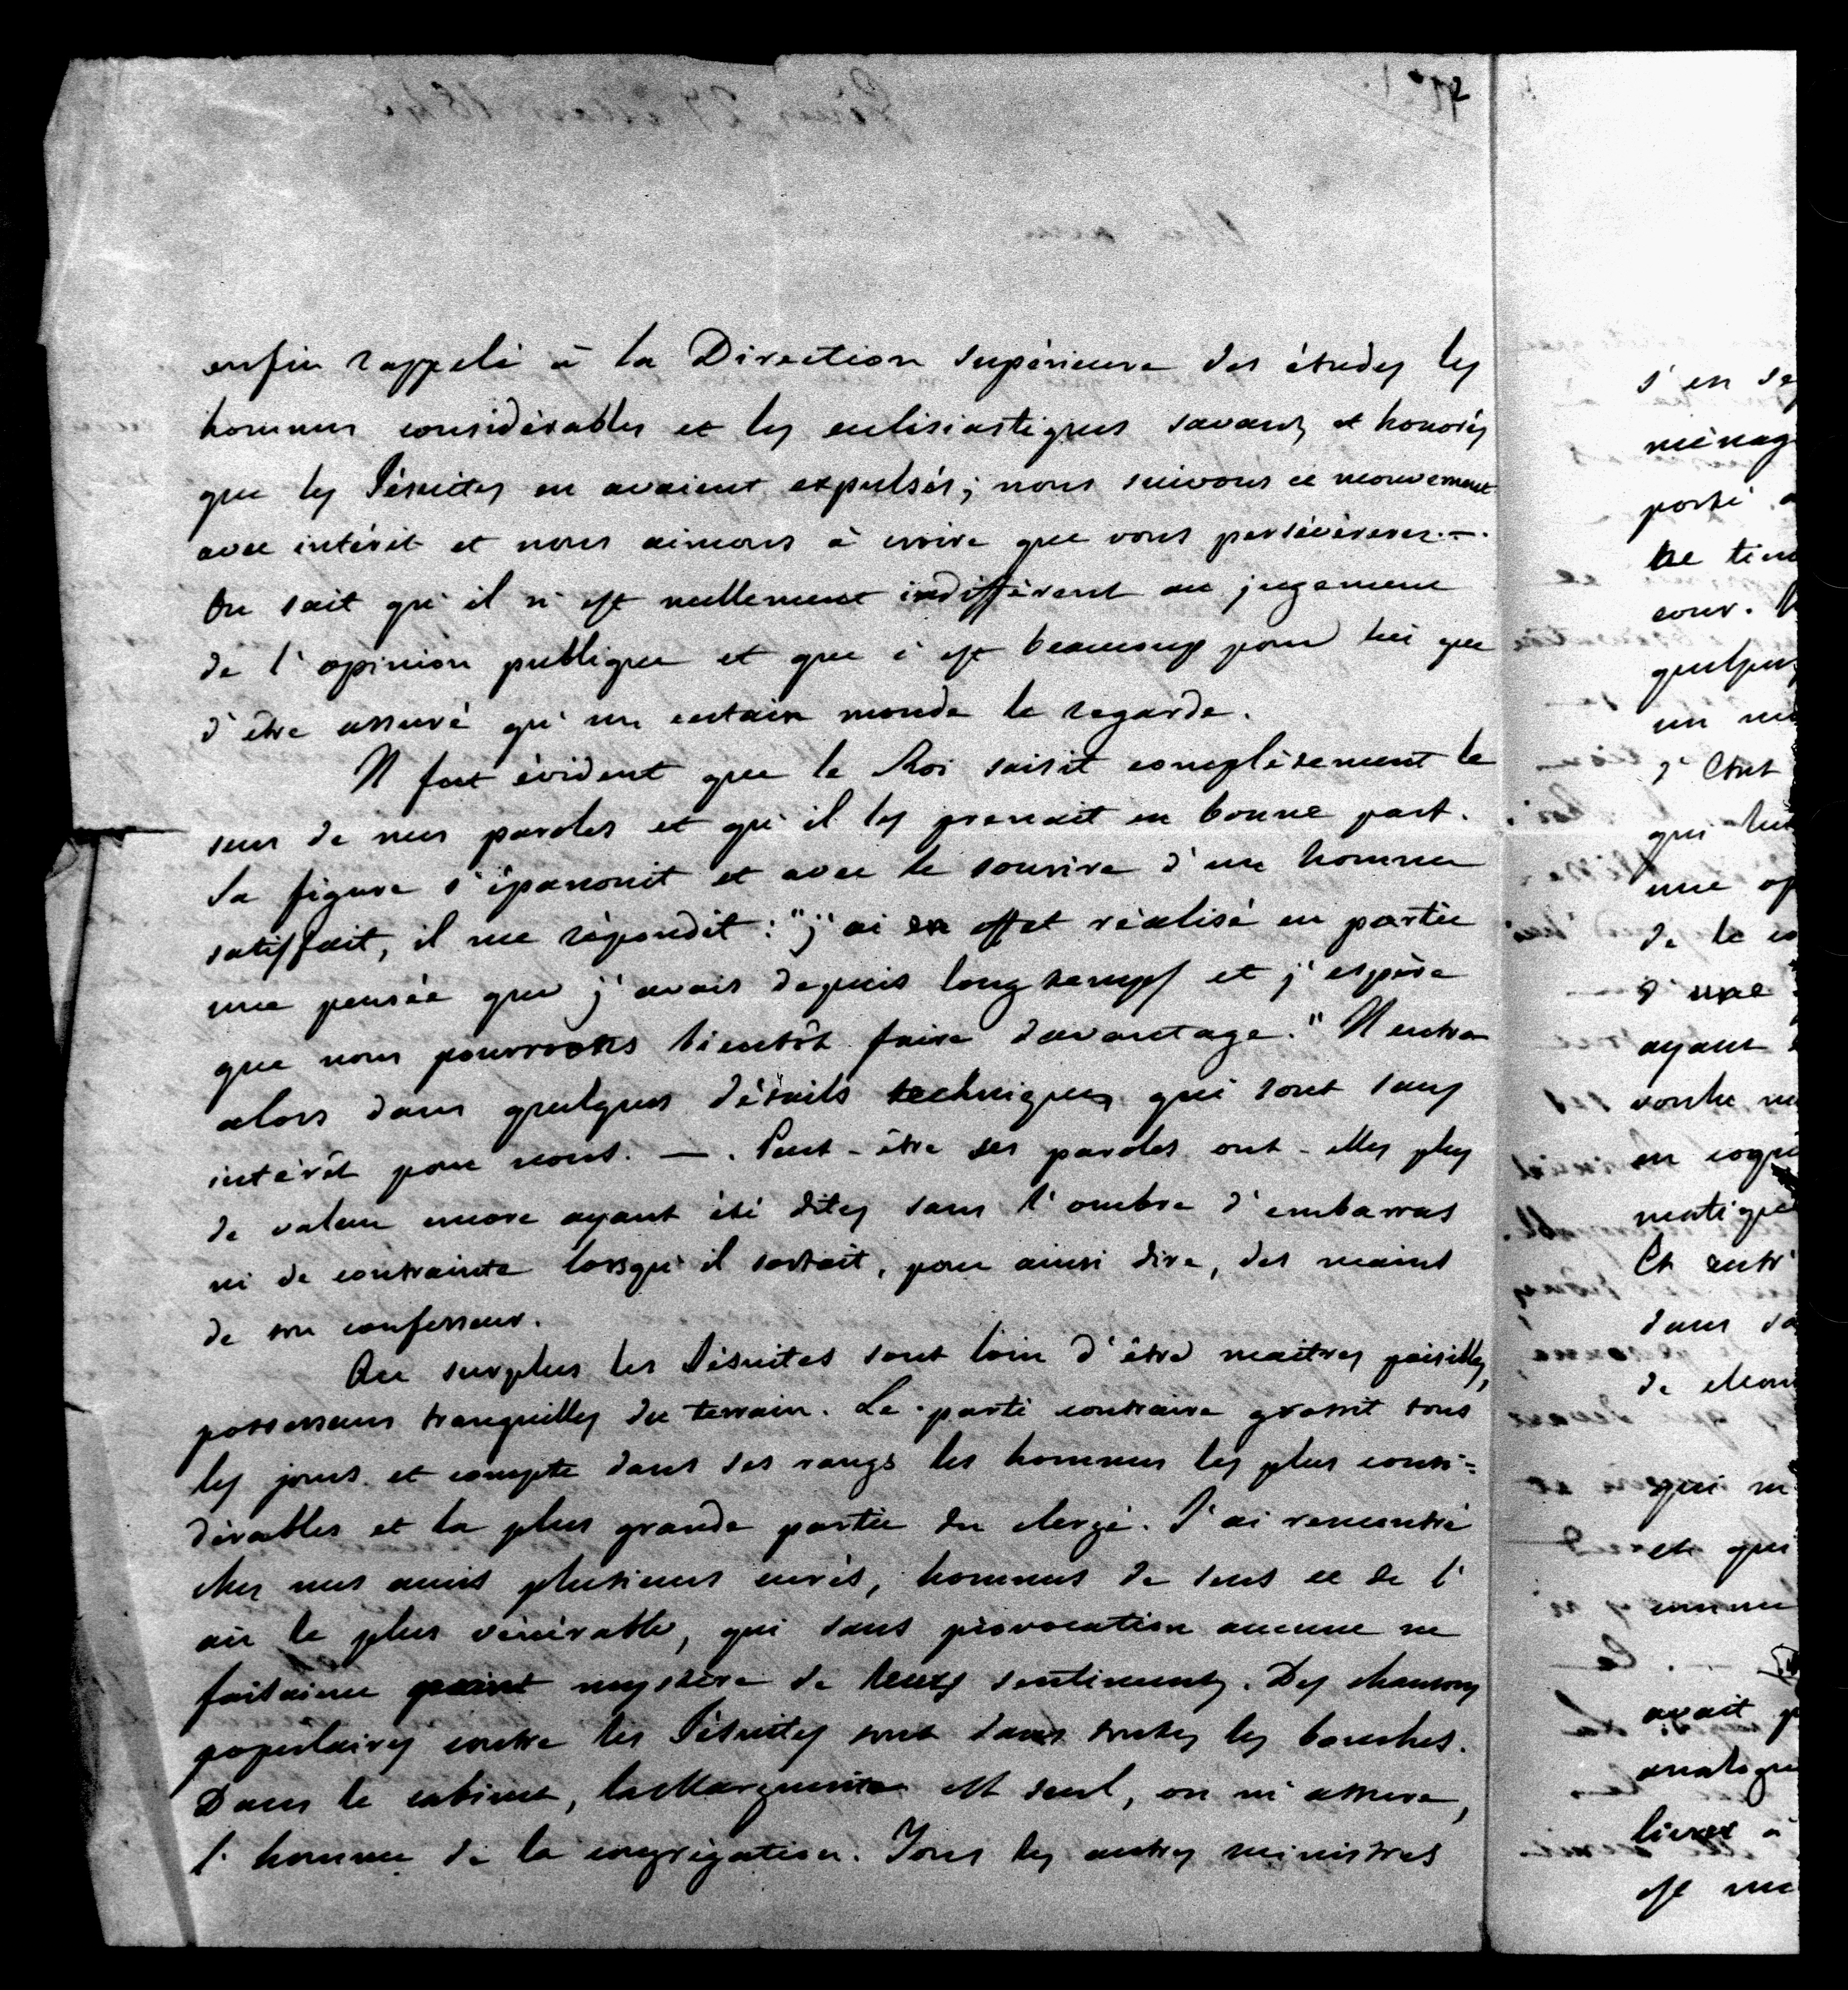 2
enfin rappelé à la Direction supérieure des études les
hommes considérables et les eclésiastiques savants et honorés
que les Jésuites en avaient expulsés; nous suivons ce mouvement
avec intérêt et nous aimons à croire que vous persévèrerez. —
On sait qu'il n'est nullement indifférent au jugement
de l'opinion publique et que c'est beaucoup pour lui que
d'être assuré qu'un certain monde le regarde.
Il fut évident que le Roi saisit complètement le
sens de mes paroles et qu'il les prenait en bonne part.
Sa figure s'épanouit et avec le sourire d'un homme
satisfait, il me répondit: "j'ai en effet réalisé en partie
une pensée que j'avais depuis longtemps et j'espère
que nous pourrons bientôt faire davantage." Il entra
alors dans quelques détails techniques qui sont sans
intérêt pour nous. — . Peut-être ses paroles ont-elles plus
de valeur encore ayant été dites sans l'ombre d'embarras
ni de contrainte lorsqu'il sortait, pour ainsi dire, des mains
de son confesseur.
Au surplus les Jésuites sont loin d'être maitres paisibles,
possesseurs tranquilles du terrain. Le parti contraire grossit tous
les jours et compte dans ses rangs les hommes les plus consi=
dérables et la plus grande partie du clergé. J'ai rencontré
chez mes amis plusieurs curés, hommes de sens et de l'
air le plus vénérable, qui sans provocation aucune ne
faisaient point mystère de leurs sentiments. Des chansons
populaires contre les Jésuites sont dans toutes les bouches.
Dans le cabinet, la Marguerite est seul, on m'assure,
l'homme de la congrégation. Tous les autres ministres
s'en
ménag
porté
cour.
un
d'Etat
qui
une
de la
d'une
ayant
en
Et
dans
de
qui
et qui
comme
avait
livrer à
est